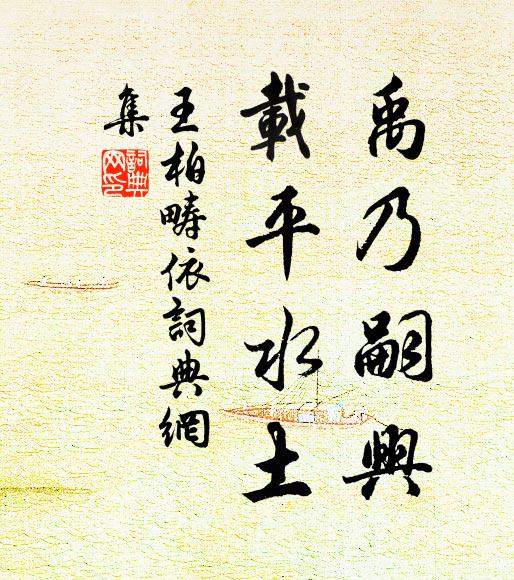 禹乃嗣興
載平水土
王柏疇依詞典網
集
詞典网印